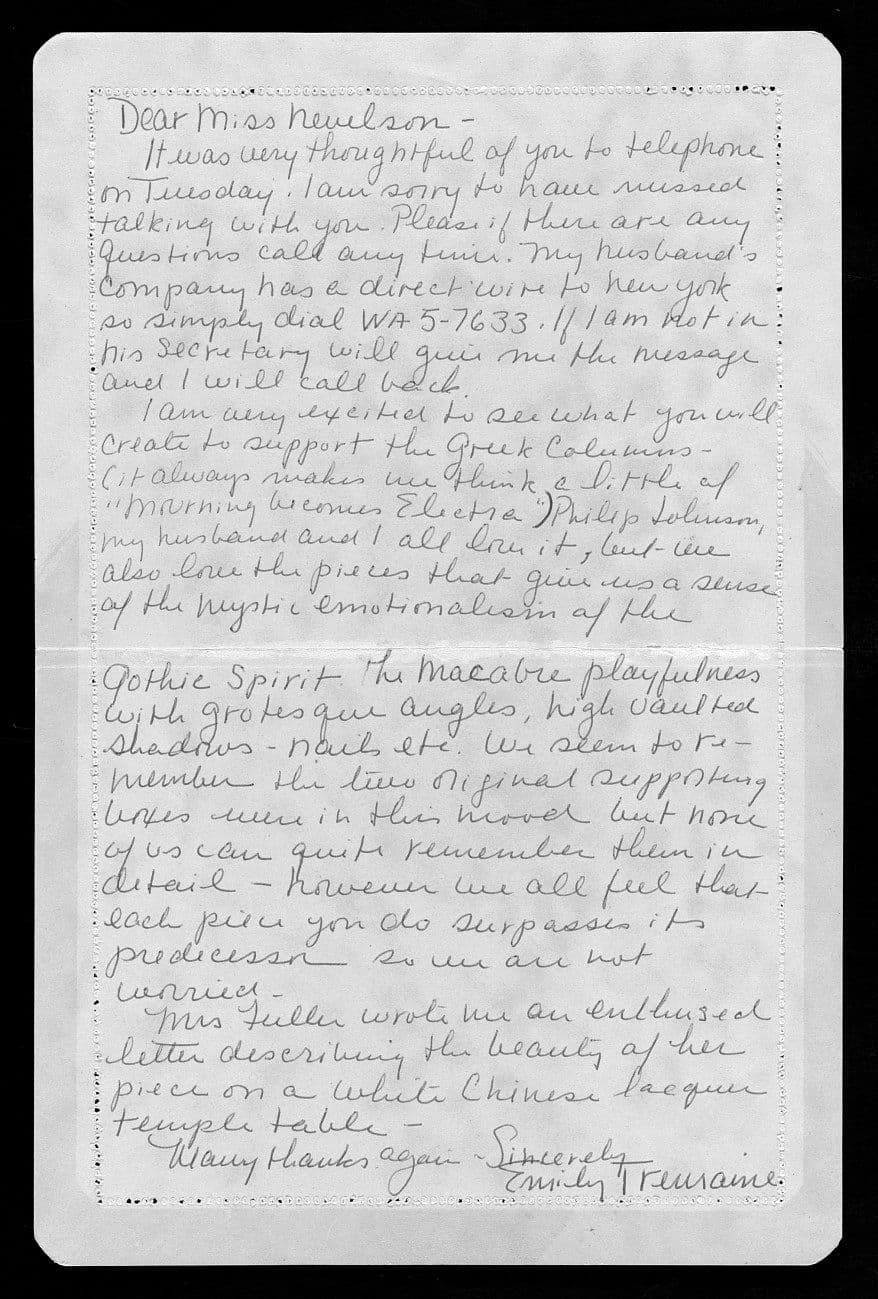 Dear Miss Nevelson -
It was very thoughtful of you to telephone
on Tuesday. I am sorry to have missed
talking with you. Please if there are any
questions call any time. My husband's
company has a direct wire to New York
so simply dial WA 5-7633. If I am not in
his Secretary will give me the message
and I will call back.
I am very excited to see what you will
create to support the Greek Columns -
(it always makes me think a little of
"Mourning becomes Electra") Philip Johnson,
my husband and I all love it, but we
also love the pieces that give us a sense
of the mystic emotionalism of the
Gothic Spirit. The Macabre playfulness
with grotesque angles, high vaulted
shadows - nails etc. We seem to re-
member the two original supporting
boxes were in this mood but none
of us can quite remember them in
detail - however we all feel that
each piece you do surpasses its
predecessor so we are not
worried -
Mrs Fuller wrote me an enthused
letter describing the beauty of her
piece on a white Chinese lacquer
temple table -
Many thanks again - Sincerely
Emily Tremaine